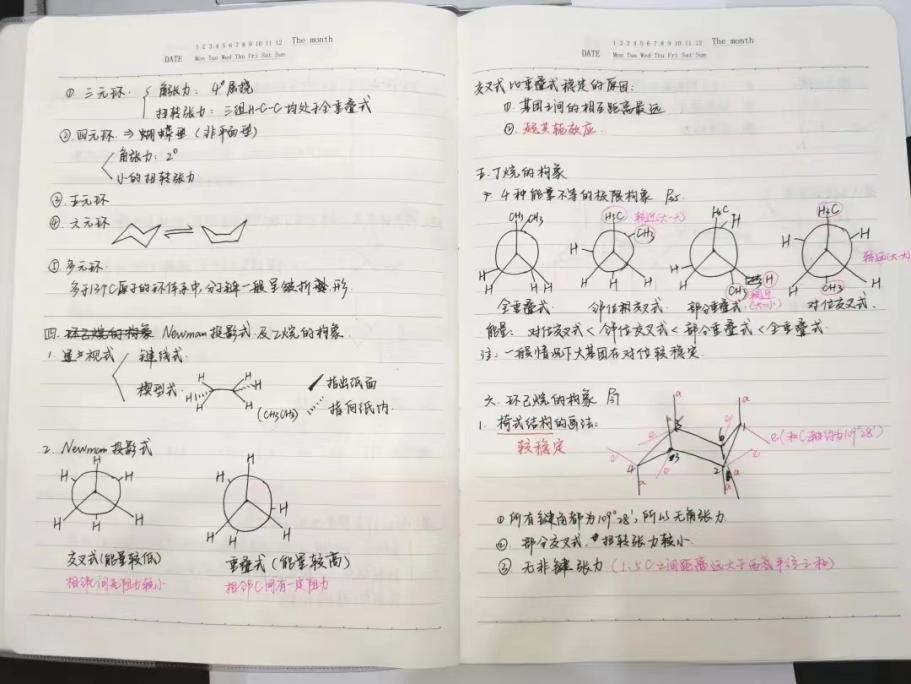 1 2 3 4 5 6 7 8 9 10 11 12 The month
DATE Mon Tue Wed Thu Fri Sat Sun
① 三元环.
角张力: 4°屈挠
扭转张力: 三组H-C-C均处于全重叠式
② 四元环 ⇒ 蝴蝶型 (非平面型)
角张力: 2°
小的扭转张力
③. 五元环
④. 六元环
⑤ 多元环
多于13个C原子的环体系中, 分子链一般呈皱折形.
四. 环己烷的构象 Newman投影式及乙烷的构象
1. 键线式.
楔型式.
H H H H H H
(CH3CH3)
指出纸面
指向纸内.
2. Newman投影式
H H H H H H
H H H H
交叉式(能量较低)
重叠式(能量较高)
相邻C间范阻力较小
相邻C间有一定阻力
1 2 3 4 5 6 7 8 9 10 11 12 The month
DATE Mon Tue Wed Thu Fri Sat Sun
交叉式比重叠式稳定的原因:
①. 基团之间的相互距离最远
②. 超共轭效应.
五. 丁烷的构象
4种能量不等的极限构象
CH3 CH3 H3C H3C H H3C
CH3 H H H
H H H H H H CH3 H CH3
较近(大-大)
较远(大-大)
较近(大-小)
全重叠式. 邻位相交叉式. 部分重叠式. 对位交叉式.
能量: 对位交叉式 < 邻位交叉式 < 部分重叠式 < 全重叠式.
注: 一般情况下大基团在对位较稳定.
六. 环己烷的构象
1. 椅式结构的画法:
较稳定
a a 5 6 1 4 3 2 e e e a a a
e(和C轴约为109°28')
① 所有键角都为109°28', 所以无角张力.
②. 部分交叉式, 扭转张力较小.
③. 无非键张力 (1,3 C之间距离远大于范氏半径之和)